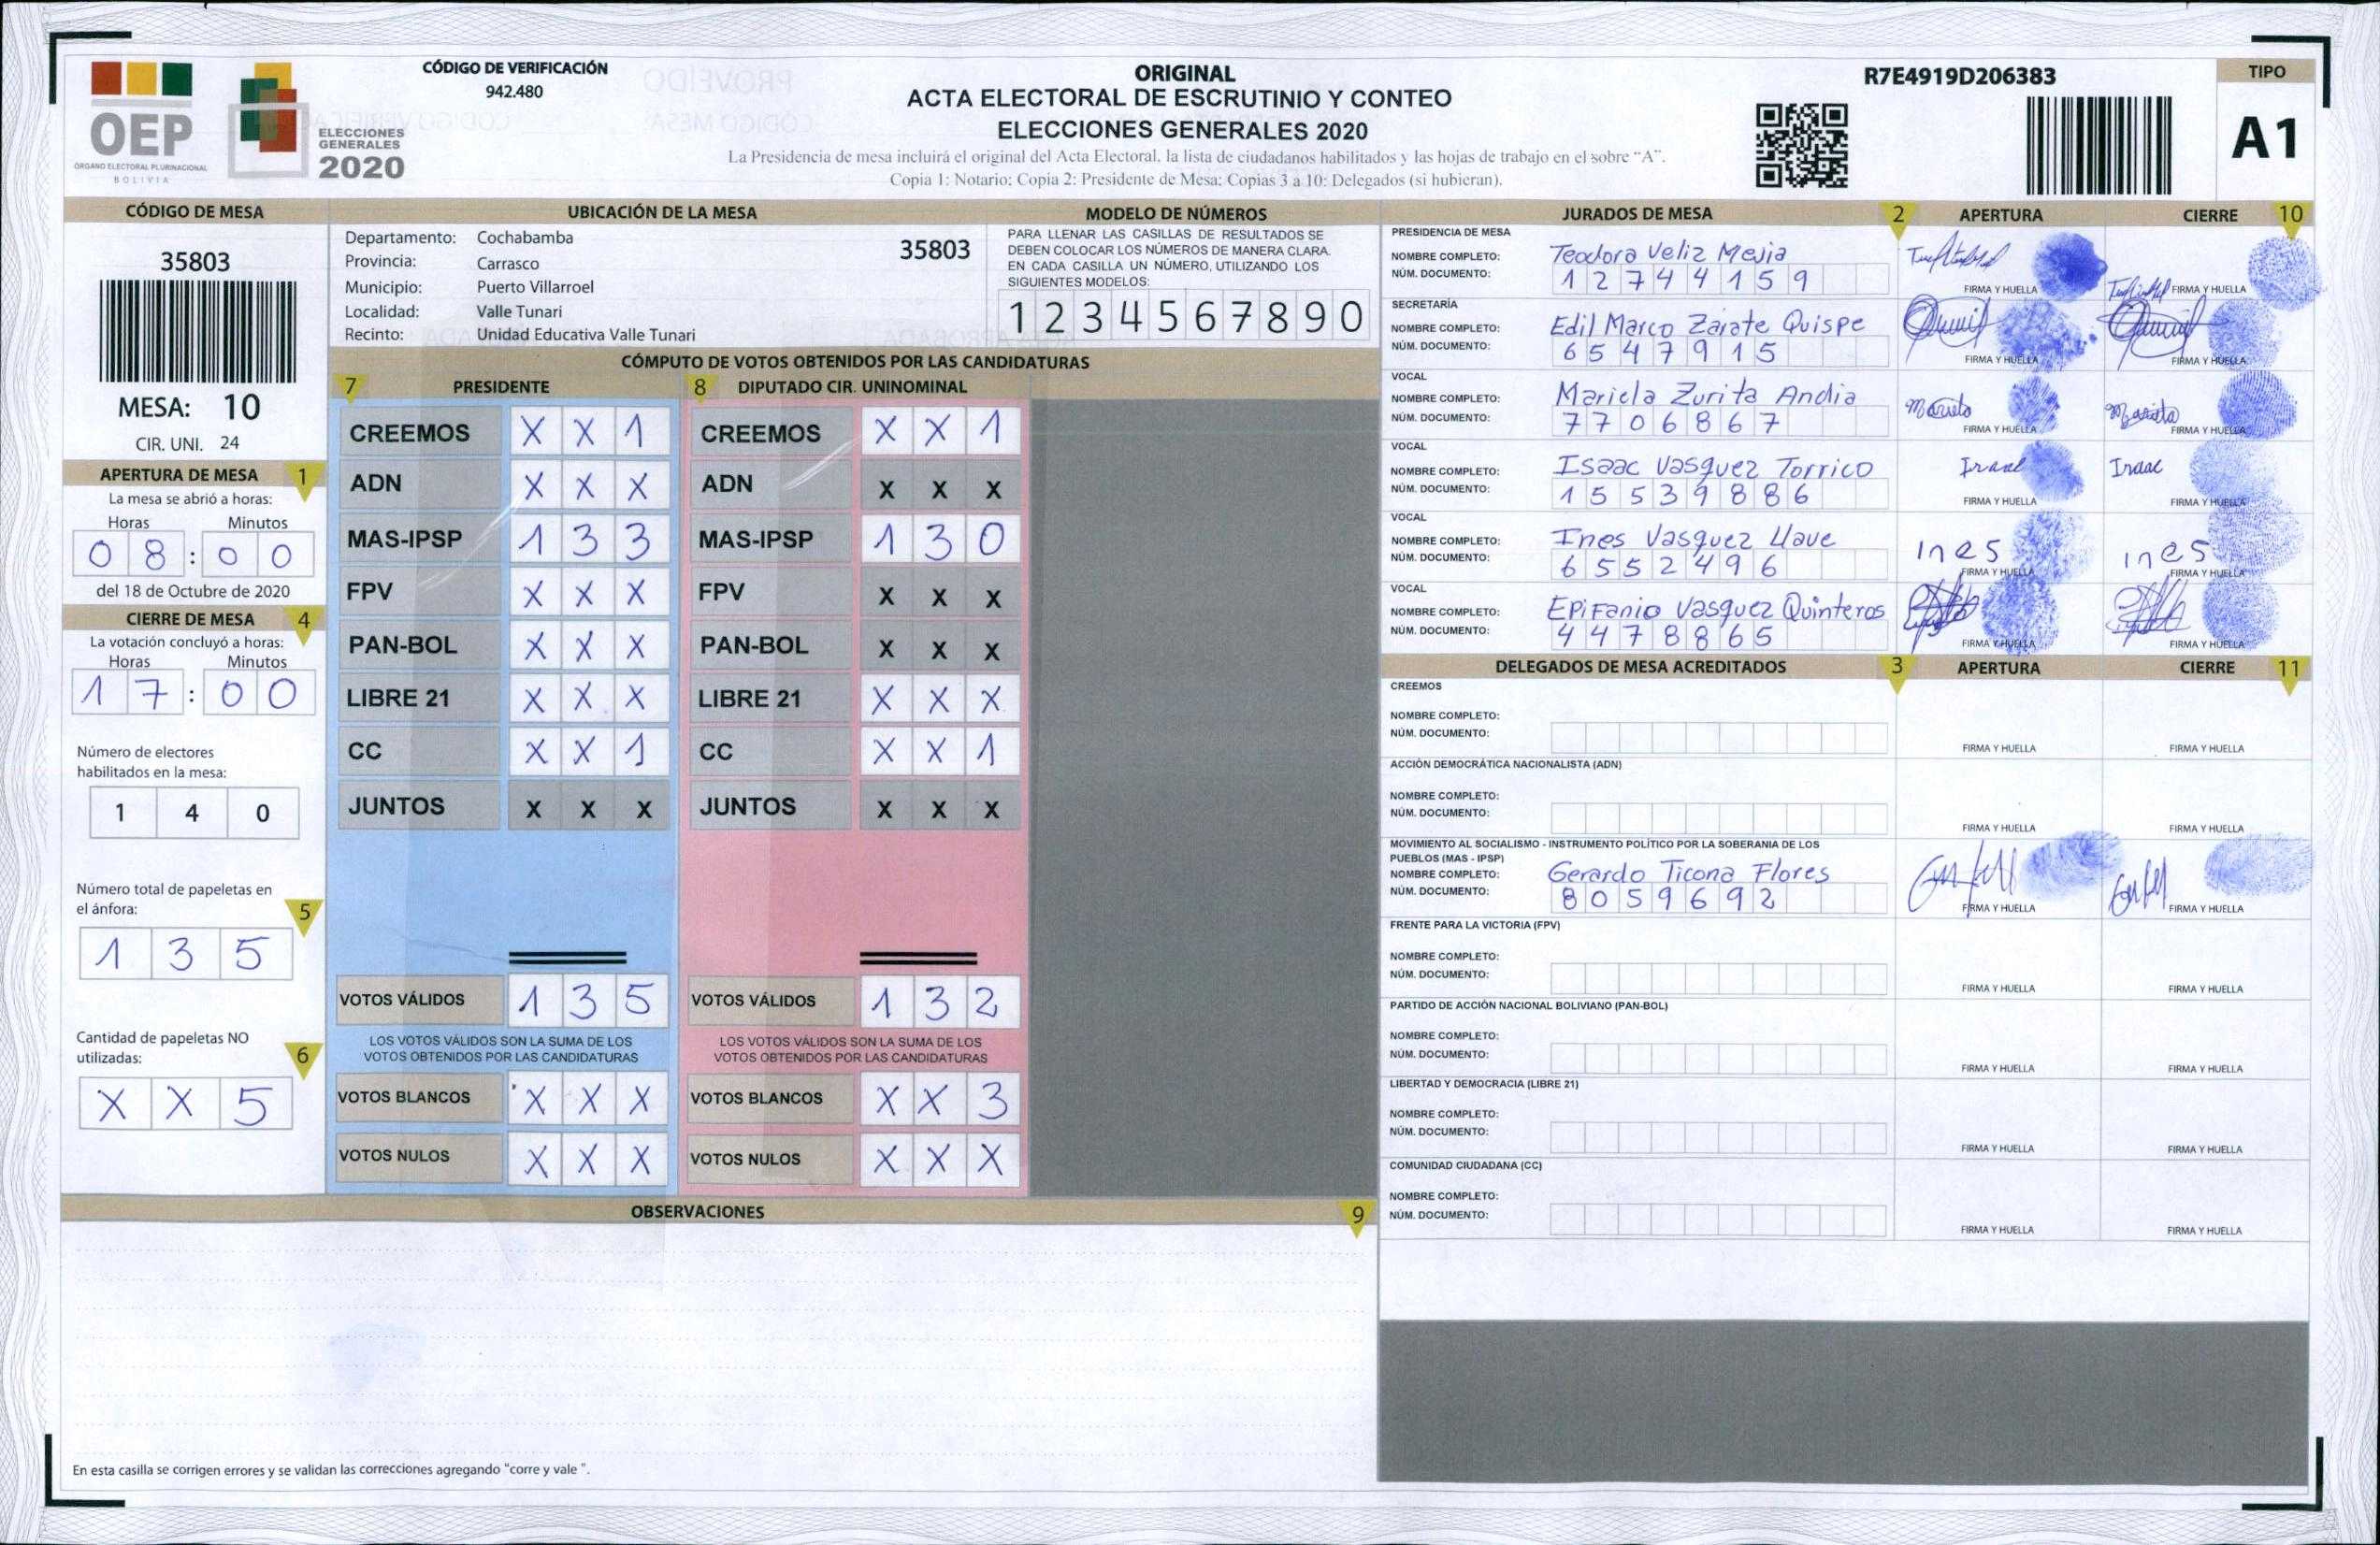 CÓDIGO DE VERIFICACIÓN
942.480
OEP
ORGANO ELECTORAL PLURINACIONAL
BOLIVIA
ELECCIONES
GENERALES
2020
ORIGINAL
ACTA ELECTORAL DE ESCRUTINIO Y CONTEO
ELECCIONES GENERALES 2020
La Presidencia de mesa incluirá el original del Acta Electoral, la lista de ciudadanos habilitados y las hojas de trabajo en el sobre “A”.
Copia 1: Notario; Copia 2: Presidente de Mesa; Copias 3 a 10: Delegados (si hubieran).
R7E4919D206383
TIPO
A1
CÓDIGO DE MESA
35803
MESA: 10
CIR. UNI. 24
APERTURA DE MESA 1
La mesa se abrió a horas:
Horas Minutos
0 8 : 0 0
del 18 de Octubre de 2020
CIERRE DE MESA 4
La votación concluyó a horas:
Horas Minutos
1 7 : 0 0
Número de electores
habilitados en la mesa:
1 4 0
Número total de papeletas en
el ánfora: 5
1 3 5
Cantidad de papeletas NO
utilizadas: 6
X X 5
UBICACIÓN DE LA MESA
Departamento: Cochabamba 35803
Provincia: Carrasco
Municipio: Puerto Villarroel
Localidad: Valle Tunari
Recinto: Unidad Educativa Valle Tunari
MODELO DE NÚMEROS
PARA LLENAR LAS CASILLAS DE RESULTADOS SE
DEBEN COLOCAR LOS NÚMEROS DE MANERA CLARA.
EN CADA CASILLA UN NÚMERO, UTILIZANDO LOS
SIGUIENTES MODELOS:
1 2 3 4 5 6 7 8 9 0
CÓMPUTO DE VOTOS OBTENIDOS POR LAS CANDIDATURAS
7 PRESIDENTE
CREEMOS X X 1
ADN X X X
MAS-IPSP 1 3 3
FPV X X X
PAN-BOL X X X
LIBRE 21 X X X
CC X X 1
JUNTOS X X X
VOTOS VÁLIDOS 1 3 5
LOS VOTOS VÁLIDOS SON LA SUMA DE LOS
VOTOS OBTENIDOS POR LAS CANDIDATURAS
VOTOS BLANCOS X X X
VOTOS NULOS X X X
8 DIPUTADO CIR. UNINOMINAL
CREEMOS X X 1
ADN X X X
MAS-IPSP 1 3 0
FPV X X X
PAN-BOL X X X
LIBRE 21 X X X
CC X X 1
JUNTOS X X X
VOTOS VÁLIDOS 1 3 2
LOS VOTOS VÁLIDOS SON LA SUMA DE LOS
VOTOS OBTENIDOS POR LAS CANDIDATURAS
VOTOS BLANCOS X X 3
VOTOS NULOS X X X
OBSERVACIONES 9
En esta casilla se corrigen errores y se validan las correcciones agregando "corre y vale ".
JURADOS DE MESA 2 APERTURA CIERRE 10
PRESIDENCIA DE MESA
NOMBRE COMPLETO: Teodora Veliz Mejia
NÚM. DOCUMENTO: 1 2 7 4 4 1 5 9
FIRMA Y HUELLA FIRMA Y HUELLA
SECRETARÍA
NOMBRE COMPLETO: Edil Marco Zárate Quispe
NÚM. DOCUMENTO: 6 5 4 7 9 1 5
FIRMA Y HUELLA FIRMA Y HUELLA
VOCAL
NOMBRE COMPLETO: Mariela Zurita Andia
NÚM. DOCUMENTO: 7 7 0 6 8 6 7
FIRMA Y HUELLA FIRMA Y HUELLA
VOCAL
NOMBRE COMPLETO: Isaac Vasquez Torrico
NÚM. DOCUMENTO: 1 5 5 3 9 8 8 6
FIRMA Y HUELLA FIRMA Y HUELLA
VOCAL
NOMBRE COMPLETO: Ines Vasquez Llave
NÚM. DOCUMENTO: 6 5 5 2 4 9 6
Ines Ines
FIRMA Y HUELLA FIRMA Y HUELLA
VOCAL
NOMBRE COMPLETO: Epifanio Vasquez Quinteros
NÚM. DOCUMENTO: 4 4 7 8 8 6 5
FIRMA Y HUELLA FIRMA Y HUELLA
DELEGADOS DE MESA ACREDITADOS 3 APERTURA CIERRE 11
CREEMOS
NOMBRE COMPLETO:
NÚM. DOCUMENTO:
FIRMA Y HUELLA FIRMA Y HUELLA
ACCIÓN DEMOCRÁTICA NACIONALISTA (ADN)
NOMBRE COMPLETO:
NÚM. DOCUMENTO:
FIRMA Y HUELLA FIRMA Y HUELLA
MOVIMIENTO AL SOCIALISMO - INSTRUMENTO POLÍTICO POR LA SOBERANIA DE LOS
PUEBLOS (MAS - IPSP)
NOMBRE COMPLETO: Gerardo Ticona Flores
NÚM. DOCUMENTO: 8 0 5 9 6 9 2
FIRMA Y HUELLA FIRMA Y HUELLA
FRENTE PARA LA VICTORIA (FPV)
NOMBRE COMPLETO:
NÚM. DOCUMENTO:
FIRMA Y HUELLA FIRMA Y HUELLA
PARTIDO DE ACCIÓN NACIONAL BOLIVIANO (PAN-BOL)
NOMBRE COMPLETO:
NÚM. DOCUMENTO:
FIRMA Y HUELLA FIRMA Y HUELLA
LIBERTAD Y DEMOCRACIA (LIBRE 21)
NOMBRE COMPLETO:
NÚM. DOCUMENTO:
FIRMA Y HUELLA FIRMA Y HUELLA
COMUNIDAD CIUDADANA (CC)
NOMBRE COMPLETO:
NÚM. DOCUMENTO:
FIRMA Y HUELLA FIRMA Y HUELLA